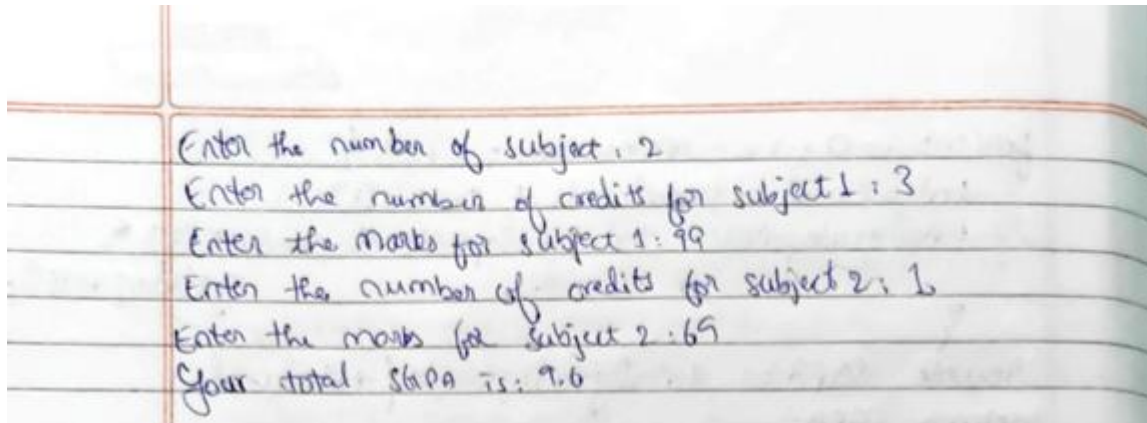 Enter the number of subject : 2
Enter the number of credits for subject 1 : 3
Enter the marks for subject 1 : 99
Enter the number of credits for subject 2 : 1
Enter the marks for subject 2 : 69
Your total SGPA is : 9.6